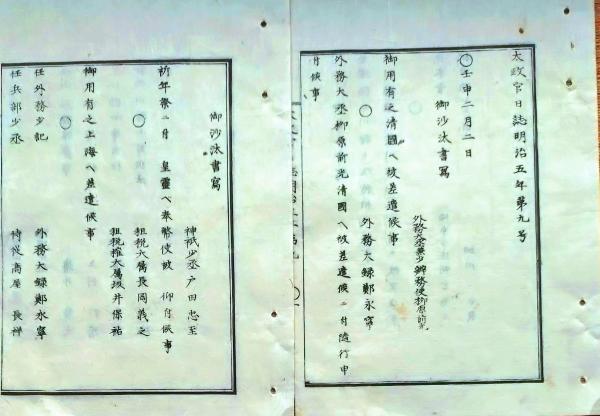 太政官日誌明治五年第九号
○壬申二月二日
御沙汰書寫
外務大丞兼少辨務使柳原前光
御用有之清國ヘ被差遣候事
○
外務大録鄭永寧
外務大丞柳原前光清國ヘ被差遣候ニ付隨行申
付候事
御沙汰書寫
神祇少丞戸田忠至
祈年祭ニ付 皇靈ヘ奉幣使被 仰付候事
○
租税大属長岡義之
租税権大属坂井保祐
御用有之上海ヘ差遣候事
○
任外務少記
外務大録鄭永寧
任兵部少丞
侍従高屋長祥